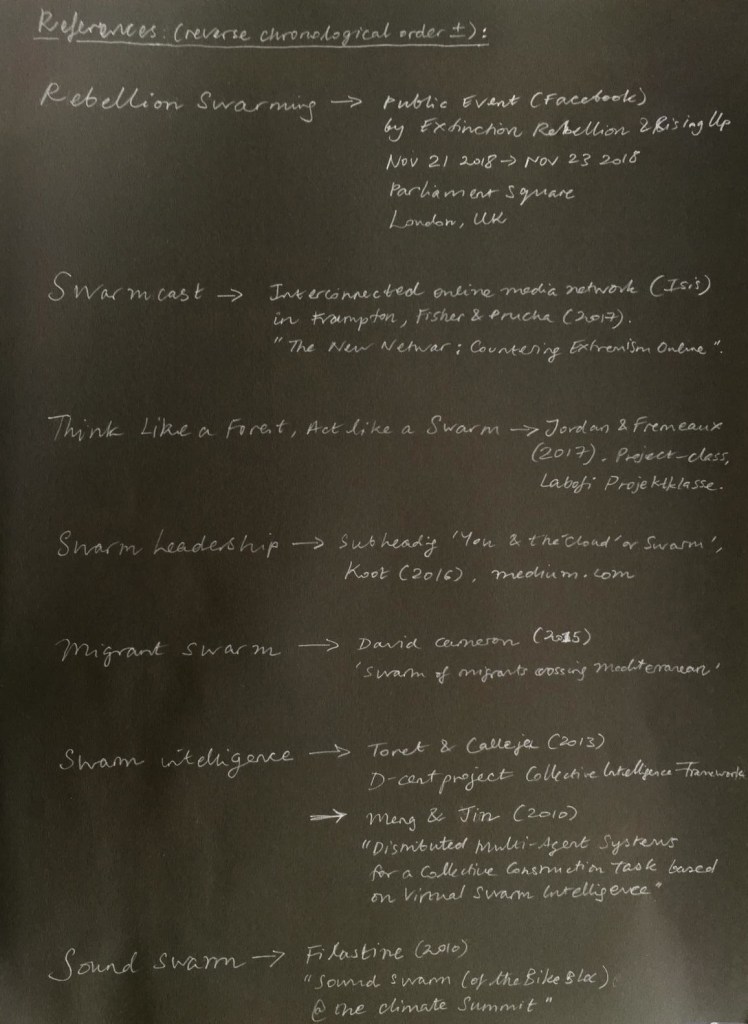 References: (reverse chronological order ±):
Rebellion Swarming → Public Event (Facebook)
by Extinction Rebellion & Rising Up
Nov 21 2018 → Nov 23 2018
Parliament Square
London, UK
Swarmcast → Interconnected online media network (Isis)
in Frampton, Fisher & Prucha (2017).
"The New Netwar; Countering Extremism Online".
Think Like a Forest, Act like a Swarm → Jordan & Fremeaux
(2017). Project-class,
Labofi Projektklasse.
Swarm Leadership → Subheadig 'You & the 'Cloud' or Swarm',
Koot (2016), medium.com
Migrant swarm → David Cameron (2015)
'Swarm of migrants crossing Mediterranean'
Swarm intelligence → Toret & Calleja (2013)
D-cent project Collective Intelligence Framework
→ Meng & Jin (2010)
"Distributed Multi-Agent Systems
for a Collective Construction Task based
on Virtual Swarm Intelligence"
Sound swarm → Filastine (2010)
"Sound swarm (of the Bike Bloc)
@ the climate Summit"